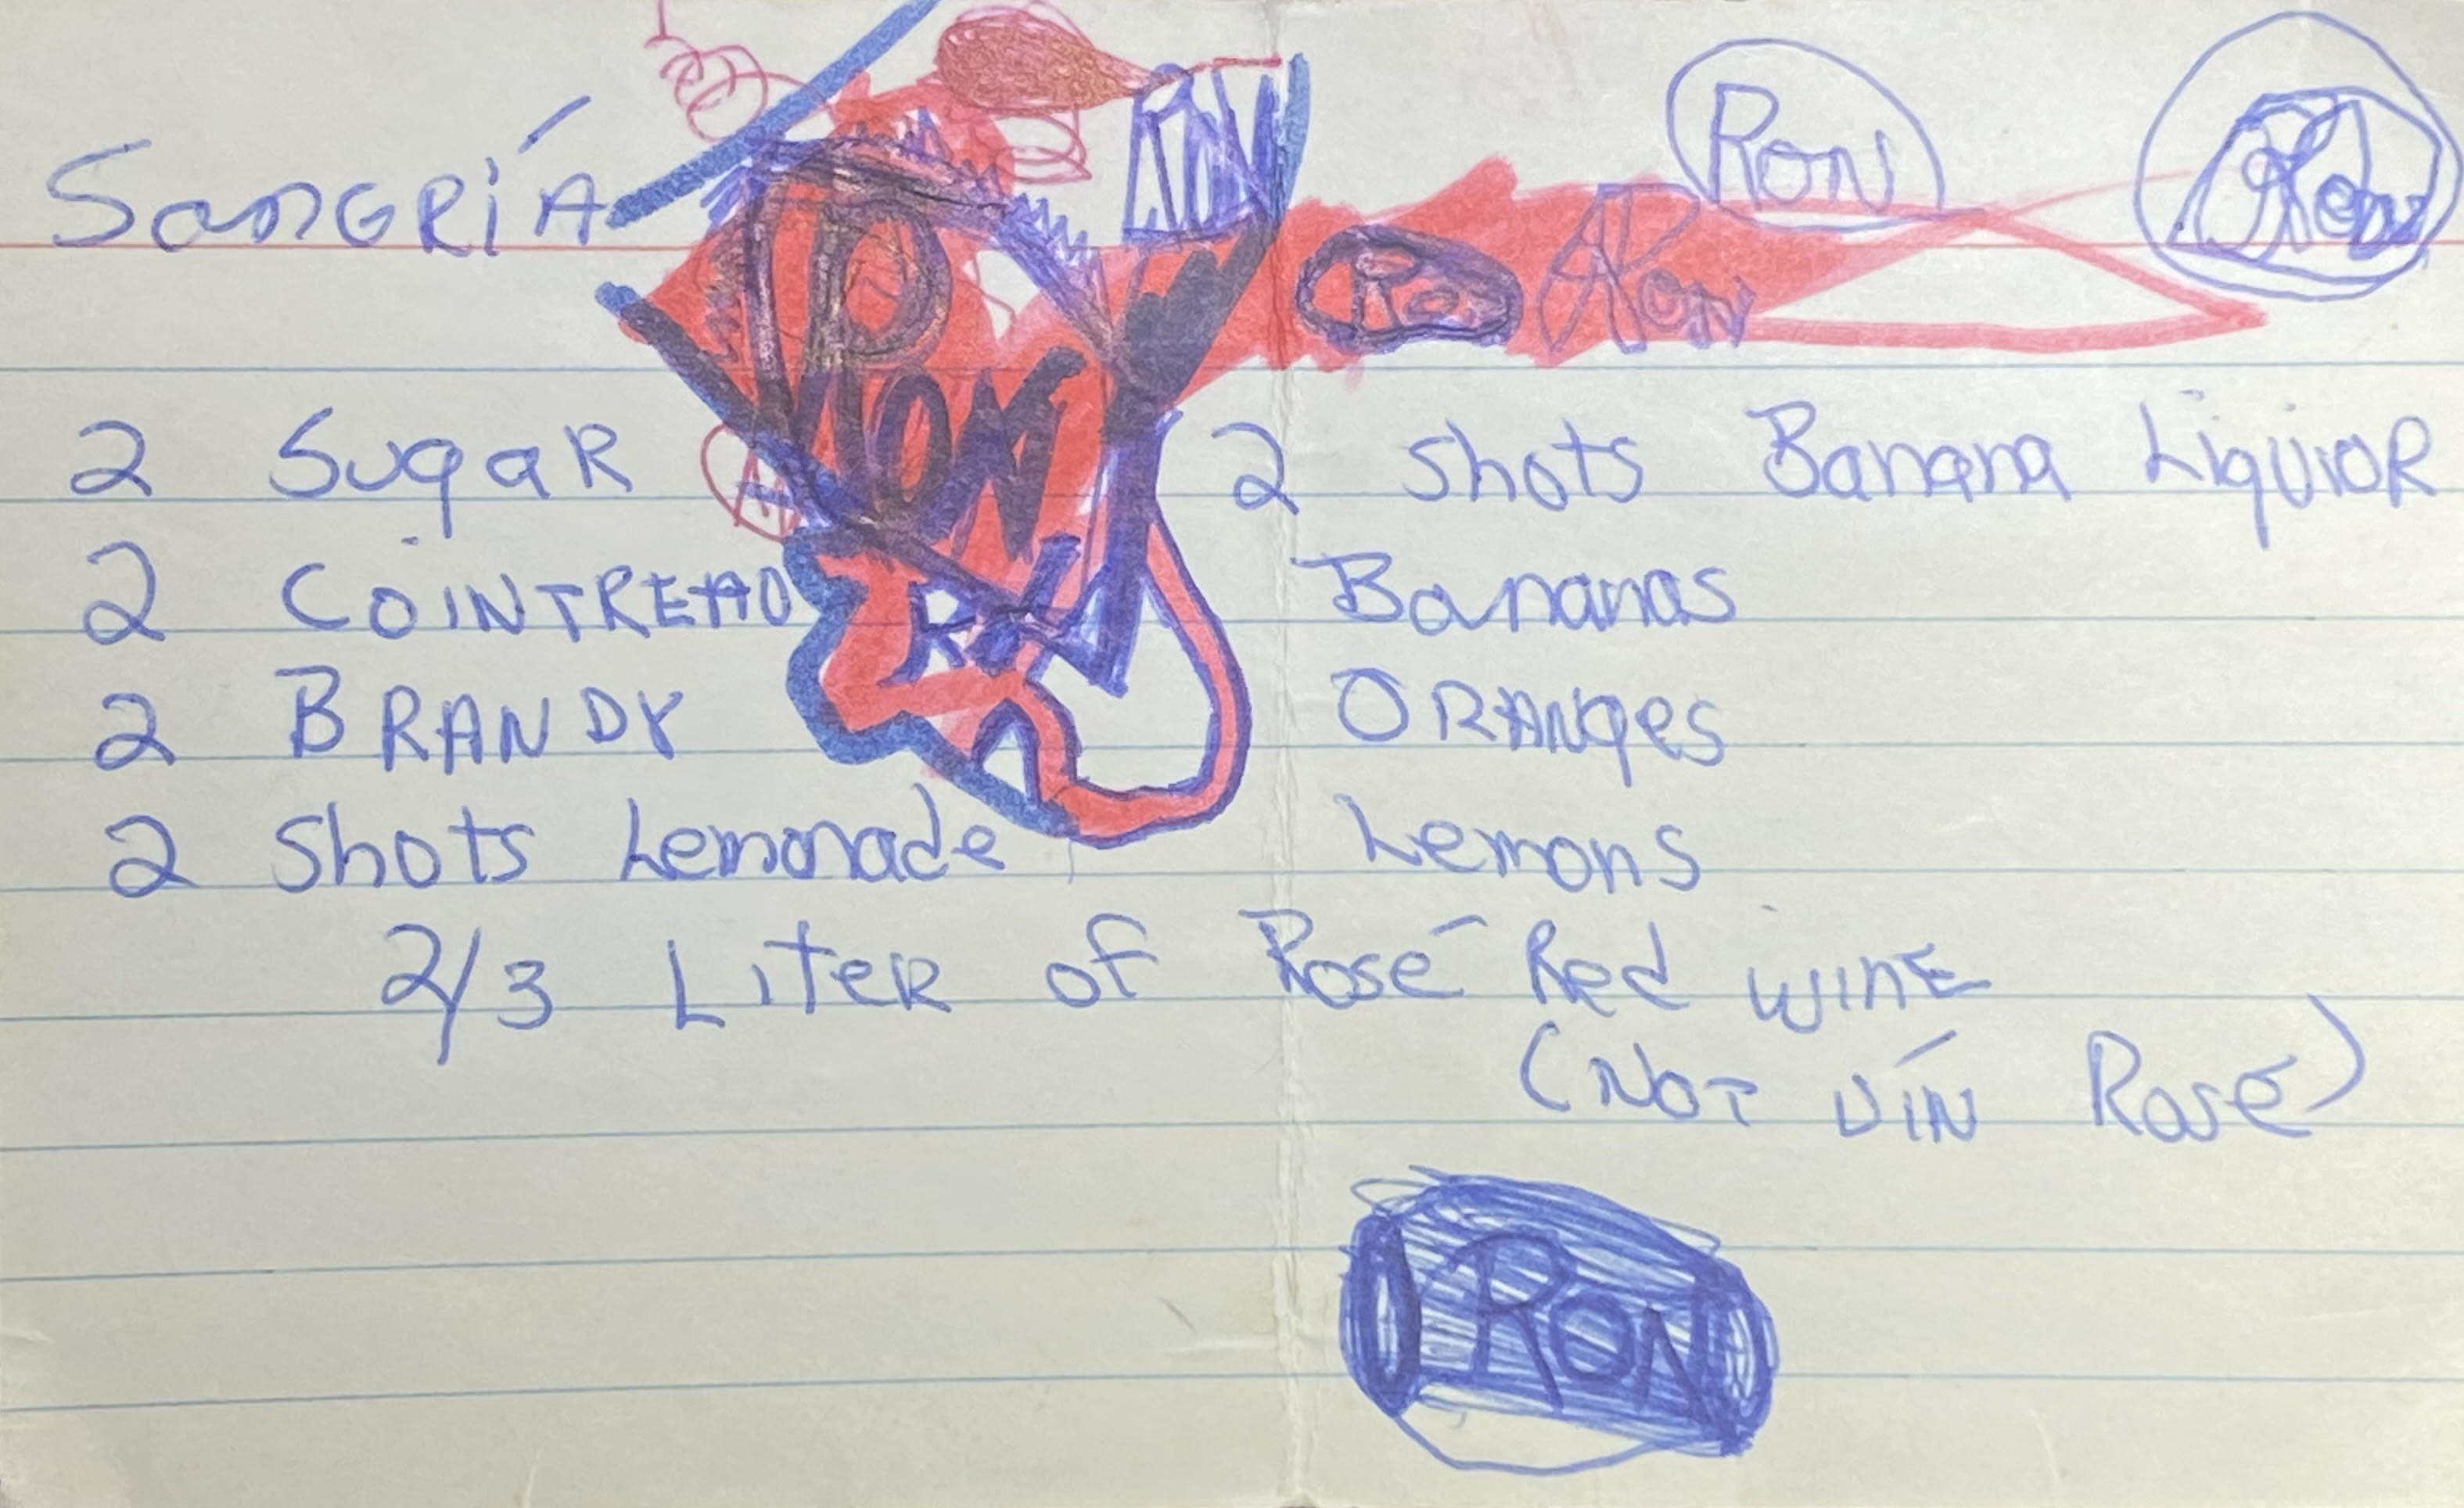 SanGRíA
RON
Ron
Ron
Ron
2 SugaR
2 COINTREAU
2 BRANDY
2 Shots Lemonade
2 shots Banana LiquioR
Bananas
ORANges
Lemons
2/3 LiteR of Rosé Red wine
(NOT VIN Rosé)
RON